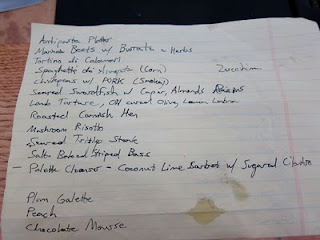 Antipasta Platter
Marinade Beets w/ Burrata & Herbs
Tortino di Calamari
Spaghetti di (Corn) Zucchini
Chickpeas w/ PORK (Smoky)
Seared Swordfish w/ Caper, Almonds
Lamb Tartare, Oil cured Olive, Lemon
Roasted Cornish Hen
Mushroom Risotto
Seared Tritip Steak
Salt Baked Striped Bass
- Palate Cleanser - Coconut Lime Sorbet w/ Sugared Cilantro
Plum Galette
Peach
Chocolate Mousse